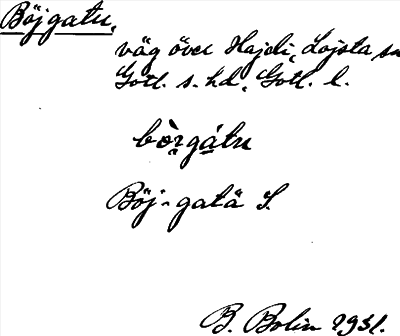 Böjgatu,
väg över Hajdi, Lojsta sn
Gotl. s. hd, Gotl. l.
Böj-gatä S.
B. Bolin 1931.